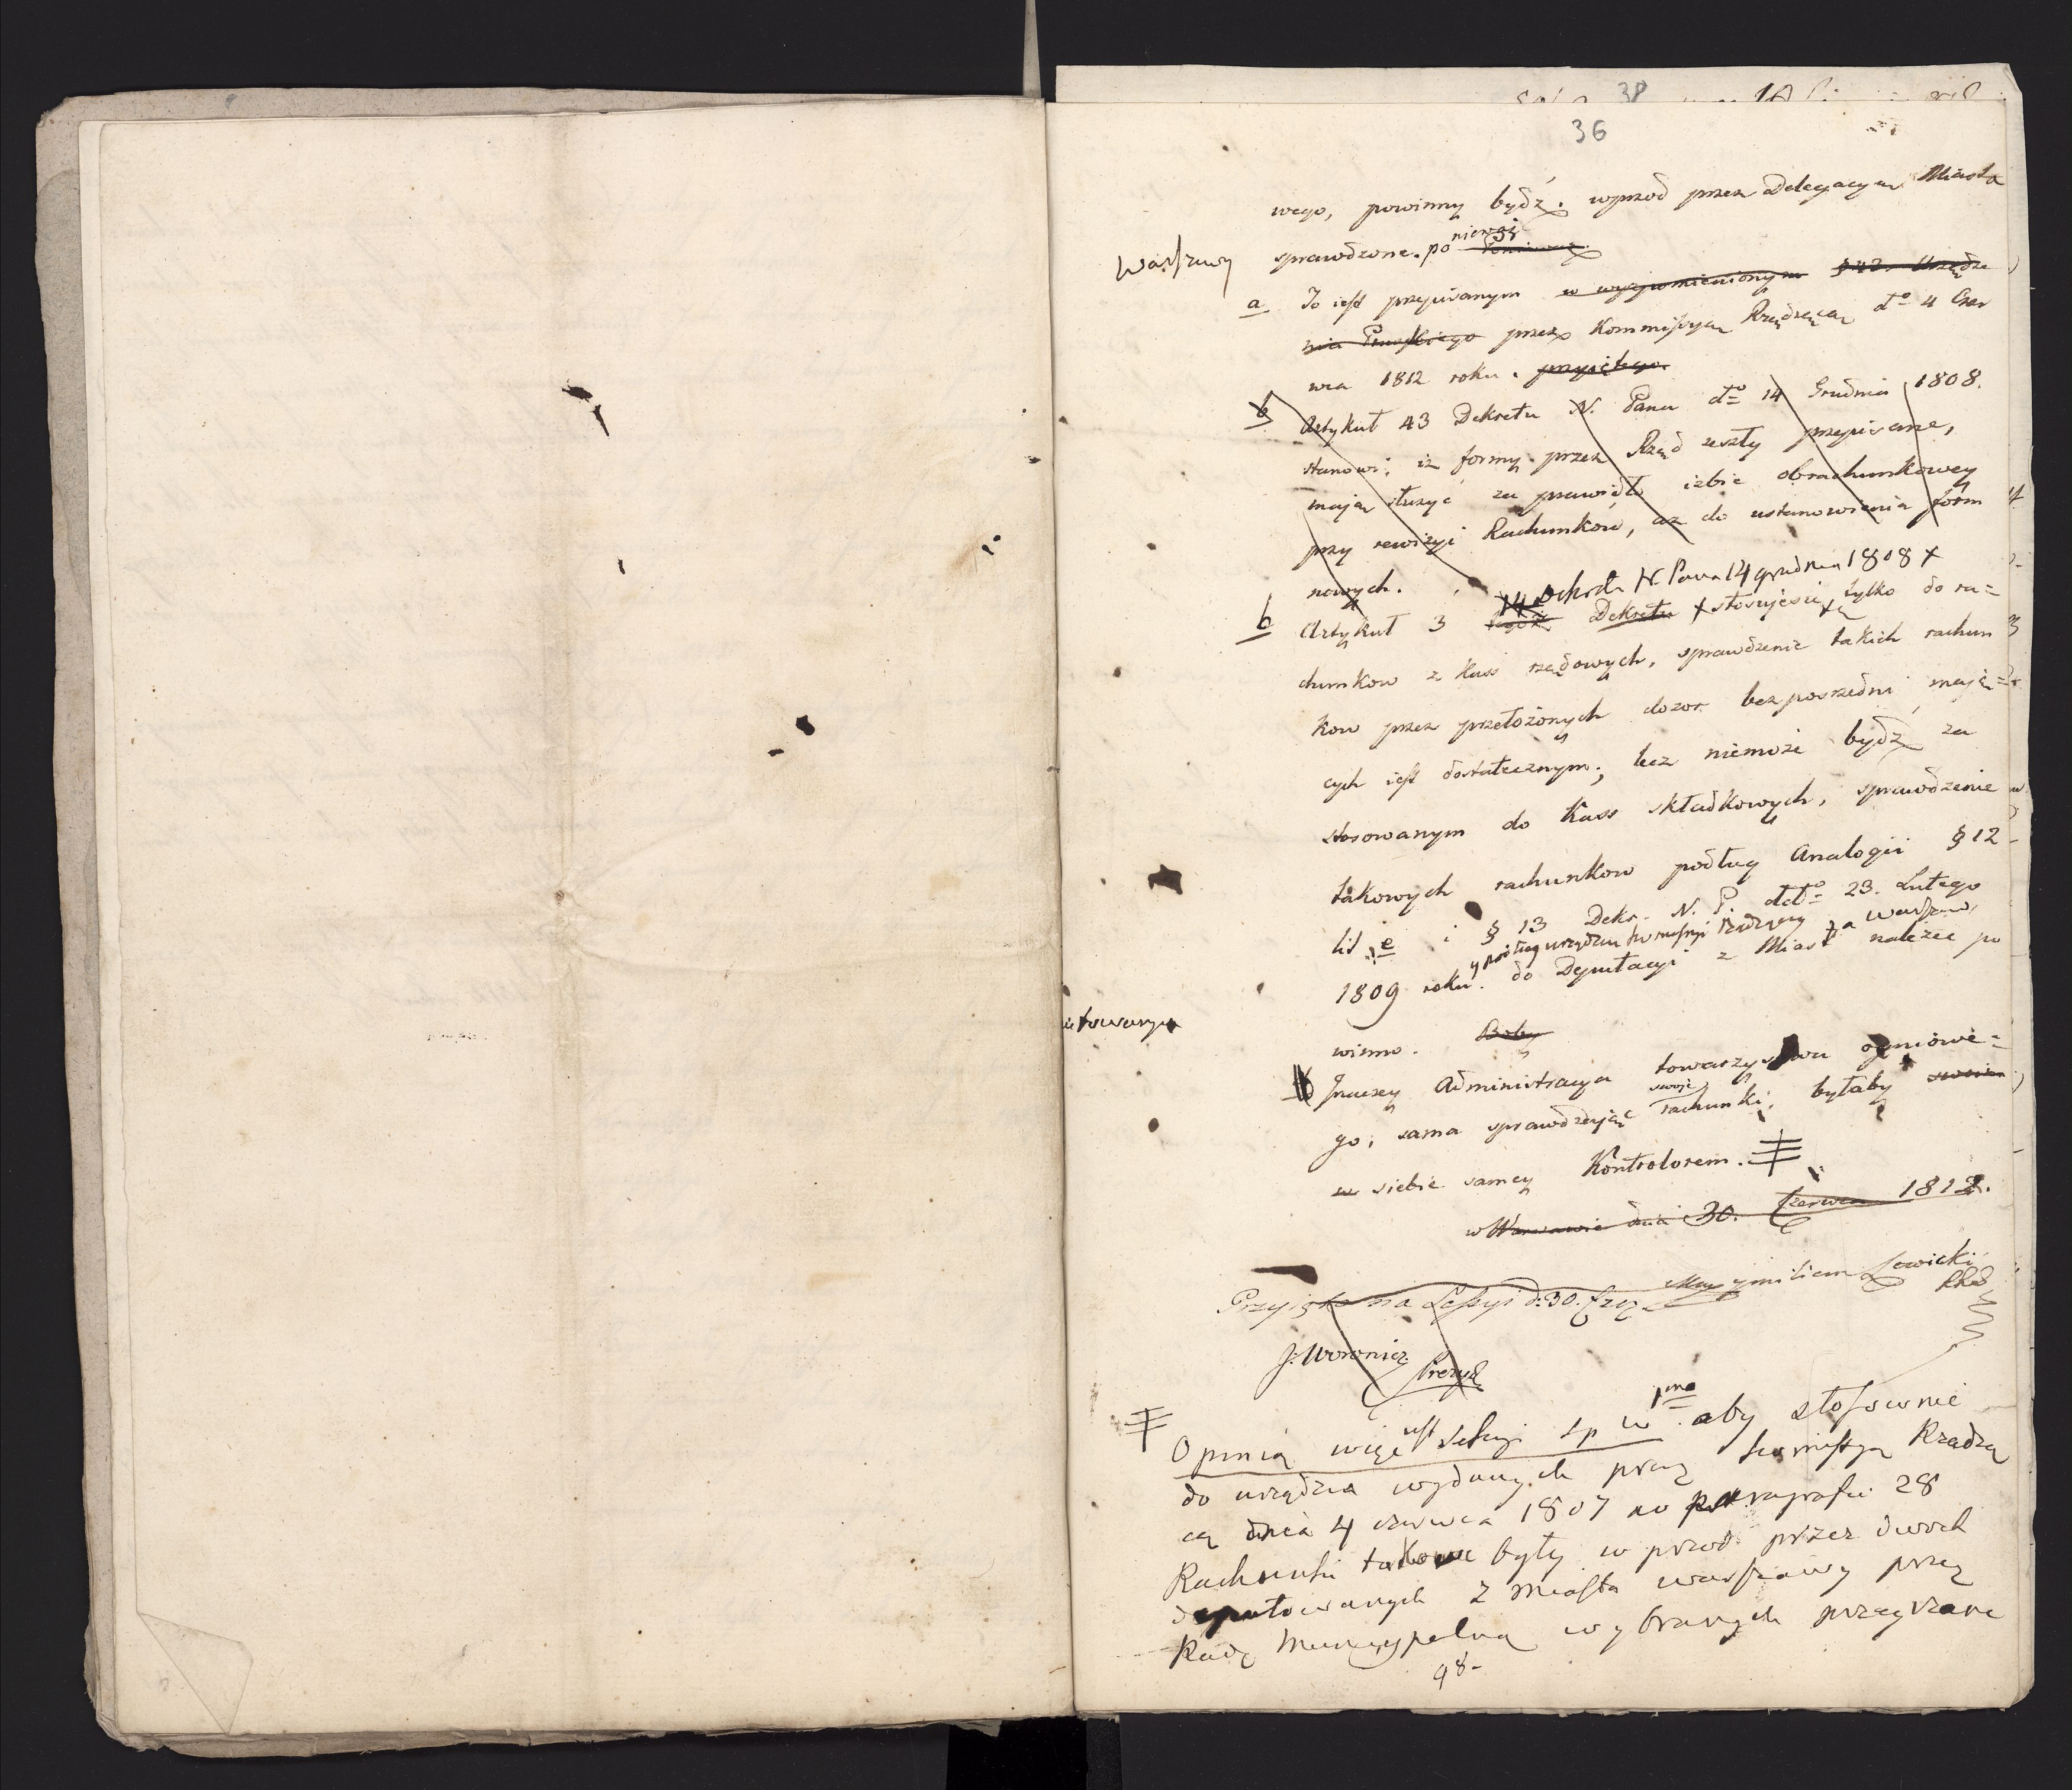 38
36
wego, powinny bydź wprzod przez Delegacyą Miasta
Warszawy sprawdzone. po niewaź Poniewaź
a To iest przepisanym w wyżwspomnionym § 42. Urządze
nia Pruskiego przez Kommissyą Rządzącą dto 4 Czer
wca 1812 roku. przyiętego.
b Artykuł 43 Dekretu N. Pana dto 14 Grudnia 1808.
stanowi; iż formy przez Rząd zeszły przepisane,
mają służyć za prawidło izbie obrachunkowey
przy rewizyi Rachunkow, aż do ustanowienia form
nowych.
14 Dekrtu N. Pana 14 grudnia 1808 +
b Artykuł 3 tegoż Dekretu + stosuie się tylko do ra=
chunkow z kass rządowych, sprawdzenie takich rachun
kow przez przełożonych dozor bezposrzedni mają=
cych iest dostatecznym; lecz niemoże bydź za
stosowanym do Kass składkowych, sprawdzenie
takowych rachunkow podług Analogii § 12
lit. e i § 13 Dekr. N. P. ddto 23. Lutego
y podług urządzen komissyi Rządzący za Warszaw.
1809 roku. do Deputacyi z Miast należeć po
winno. Boby
utowanych
Inaczey Administracya towarzystwa ogniowe=
go, sama sprawdzaiąc swoje rachunki, byłaby
siebie samey Kontrolorem.
w Warszawie dnia 30. Czerwca 1812.
Maxymilian Lewicki
Przyięto na Sessyi d. 30. Czer.
J: Woronicz
Prezyd
Opinią więc iest Sekcyi 1mo aby stosownie
do urządzia wydanych przez komissyą Rządzą
cą dnia 4 czerwca 1807 w paragrafie 28
Rachunki takowe były w przod przez dwoch
deputowanych z Miasta warszawy przez
Radę Municypalną wybranych przeyrzane
98-